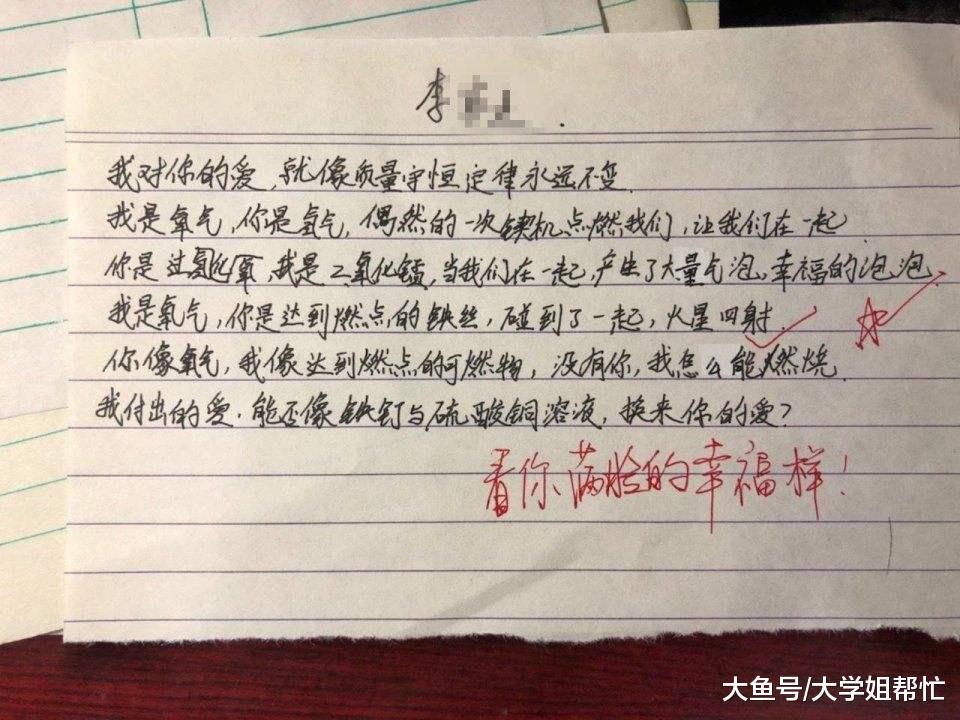 李
我对你的爱,就像质量守恒定律永远不变.
我是氧气,你是氢气,偶然的一次锲机点燃我们,让我们在一起
你是过氧化氢,我是二氧化锰,当我们在一起,产生了大量气泡,幸福的泡泡
我是氧气,你是达到燃点的铁丝,碰到了一起,火星四射
你像氧气,我像达到燃点的可燃物,没有你,我怎么能燃烧.
我付出的爱.能否像铁钉与硫酸铜溶液,换来你的爱?
看你满脸的幸福样!
大鱼号/大学姐帮忙